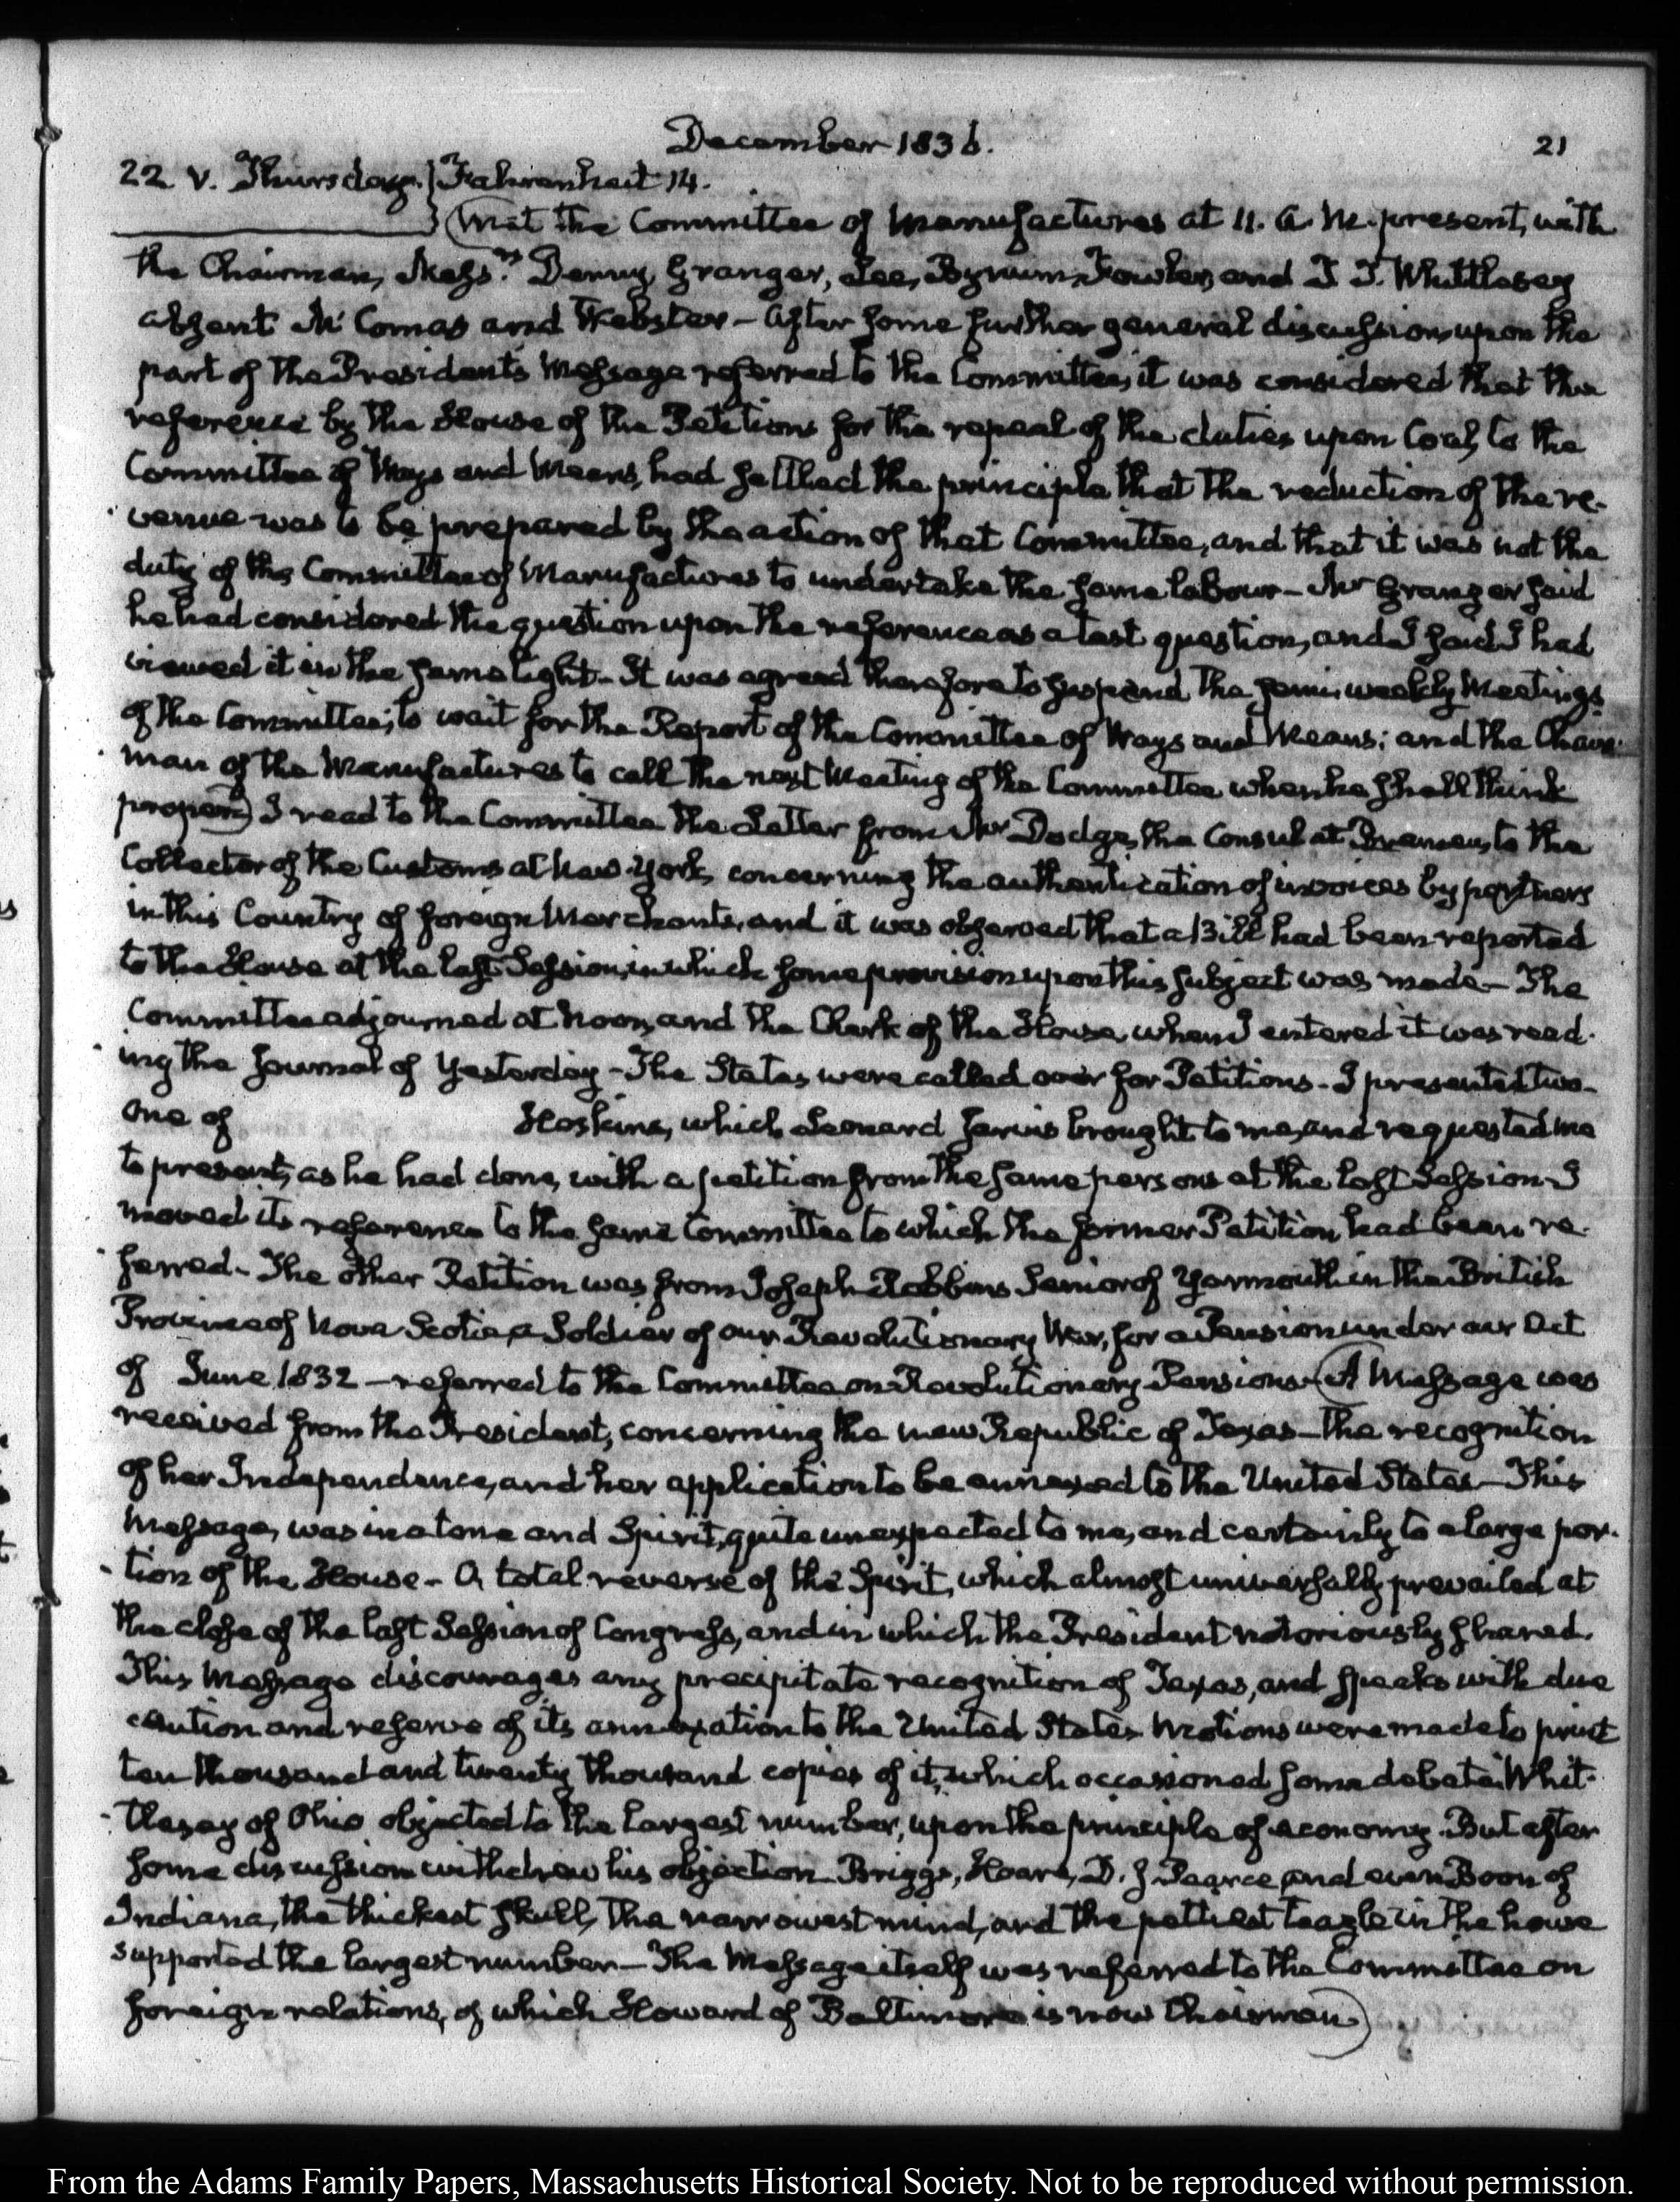 December 1836.
21
22 V. Thursday. Fahrenheit 14.
Met the Committee of Manufactures at 11. A. M. present, with
the Chairman, Messrs. Denny, Granger, Lee, Bynum, Fowler, and T. T. Whittlesey
absent McComas and Webster — After some further general discussion upon the
part of the President's Message referred to the Committee, it was considered that the
reference by the House of the Petitions for the repeal of the duties upon Coal, to the
Committee of Ways and Means, had settled the principle that the reduction of the re-
venue was to be prepared by the action of that Committee, and that it was not the
duty of the Committee of Manufactures to undertake the same labour — Mr Granger said
he had considered the question upon the reference as a test question, and I said I had
viewed it in the same light — It was agreed therefore to suspend the semi-weekly Meetings
of the Committee; to wait for the Report of the Committee of Ways and Means; and the Chair-
man of the Manufactures to call the next Meeting of the Committee when he shall think
proper) I read to the Committee the Letter from Mr Dodge, the Consul at Bremen, to the
Collector of the Customs at New-York, concerning the authentication of invoices by partners
in this Country of foreign Merchants, and it was observed that a Bill had been reported
to the House at the last Session, in which some provision upon this subject was made — The
Committee adjourned at Noon, and the Clerk of the House, when I entered it was read-
ing the Journal of Yesterday — The States were called over for Petitions — I presented two —
One of Hoskins, which Leonard Jarvis brought to me, and requested me
to present, as he had done, with a petition from the same persons at the last Session — I
moved its reference to the same Committee to which the former Petition had been re-
ferred — The other Petition was from Joseph Robbins Senior of Yarmouth in the British
Province of Nova Scotia, a Soldier of our Revolutionary War, for a Pension under our Act
of June 1832 — referred to the Committee on Revolutionary Pensions — (A Message was
received from the President, concerning the new Republic of Texas — the recognition
of her Independence, and her application to be annexed to the United States — This
Message, was in a tone and Spirit, quite unexpected to me, and certainly to a large por-
tion of the House — A total reverse of the Spirit, which almost universally prevailed at
the close of the last Session of Congress, and in which the President notoriously shared.
This Message discourages any precipitate recognition of Texas, and speaks with due
caution and reserve of its annexation to the United States. Motions were made to print
ten thousand and twenty thousand copies of it, which occasioned some debate. Whit-
tlesey of Ohio objected to the largest number, upon the principle of economy. But after
some discussion withdrew his objection. Briggs, Hoar, D. J. Pearce and even Boon of
Indiana, the thickest skull, the narrowest mind, and the pettiest in the house
supported the largest number — The Message itself was referred to the Committee on
foreign relations, of which Howard of Baltimore is now Chairman)
From the Adams Family Papers, Massachusetts Historical Society. Not to be reproduced without permission.